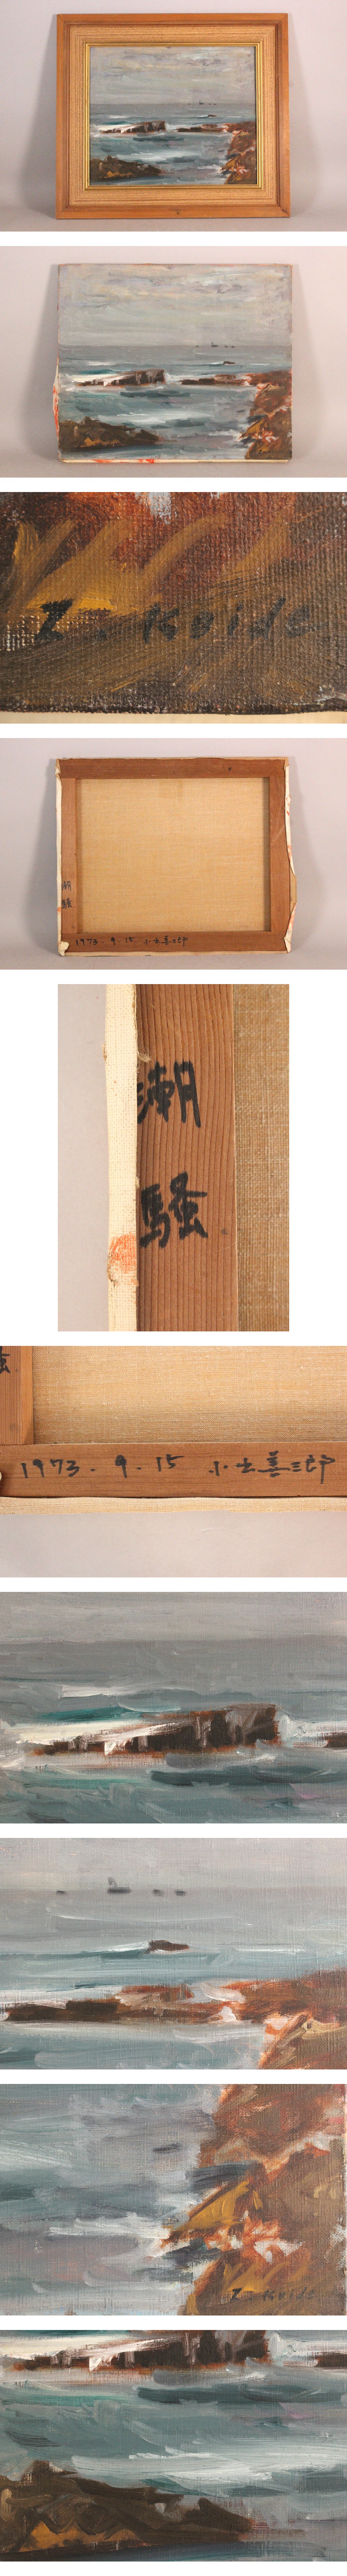 Z. Koide
潮騒
1973. 9. 15 小出善三郎
潮
騒
1973. 9. 15 小出善三郎
Z. Koide